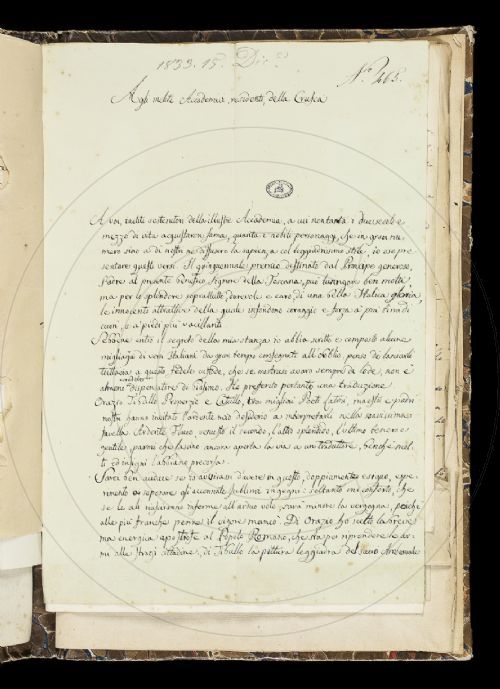 1833. 15. Dic.e
N.o 465.
Agli incliti Accademici residenti della Crusca
A voi, incliti sostenitori della illustre Accademia, a cui non tanto i due secoli e
mezzo di vita acquistaron fama, quanto e nobili personaggi, che in gran nu-
mero sino a dì nostri ne diffusero la sapienza col leggiadrissimo stile, io ose pre-
sentare questi versi. Il quinquennale premio destinato dal Principe generoso,
Padre al presente benefico Signore della Toscana, può lusingar ben molto,
ma per lo splendore soprattutto durevole e caro di una bella Italica gloria,
le innocenti attrattive della quale infondono coraggio e forza a' più timidi
cuori, e a' piedi più vacillanti.
Sebbene entro il segreto della mia stanza io abbia scritto e composto alcune
migliaja di versi Italiani da gran tempo consegnati all'obblio, penso de lasciarle
tuttavia a questo fedele custode, che se mostrasi avaro sempre di lode, non è
almeno dispensatore di biasimo. Ho preferito pertanto una traduzione
Orazio Tibullo Properzio e Catullo, tra' migliori Poeti latini, maestri e padri
nostri hanno destato l'ardente mio desiderio a interpretarli nella soavissima
favella. Ardente Fuoco, venusto il secondo, l'altro splendido, l'ultimo tenero e
gentile, parmi che lascino ancora aperta la via a un traduttore, benchè mol-
ti ed insigni l'abbiano precorsa.
Sarei ben audace se io avvisassi di avere in questo, doppiamente esiguo, espe-
rimento superare gli accennati sublimi ingegni: soltanto mi conforto, che
se le ali riusciranno inferme all'arduo volo, sarà minore la vergogna, poichè
alle più franche penne il vigore mancò. Di Orazio ho scelto la brevis-
sima energia apostrofe al Popolo Romano, che sta per riprendere le ar-
mi alle stragi cittadine, di Tibullo la pittura leggiadra del sacro Arvevale